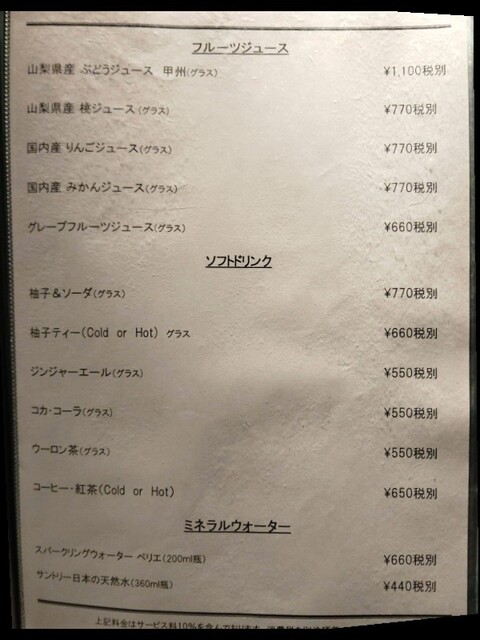 フルーツジュース
山梨県産 ぶどうジュース 甲州(グラス) ¥1,100税別
山梨県産 桃ジュース(グラス) ¥770税別
国内産 りんごジュース(グラス) ¥770税別
国内産 みかんジュース(グラス) ¥770税別
グレープフルーツジュース(グラス) ¥660税別
ソフトドリンク
柚子&ソーダ(グラス) ¥770税別
柚子ティー(Cold or Hot) グラス ¥660税別
ジンジャーエール(グラス) ¥550税別
コカ・コーラ(グラス) ¥550税別
ウーロン茶(グラス) ¥550税別
コーヒー・紅茶(Cold or Hot) ¥650税別
ミネラルウォーター
スパークリングウォーター ペリエ(200ml瓶) ¥660税別
サントリー日本の天然水(360ml瓶) ¥440税別
上記料金はサービス料10%を含んでおります